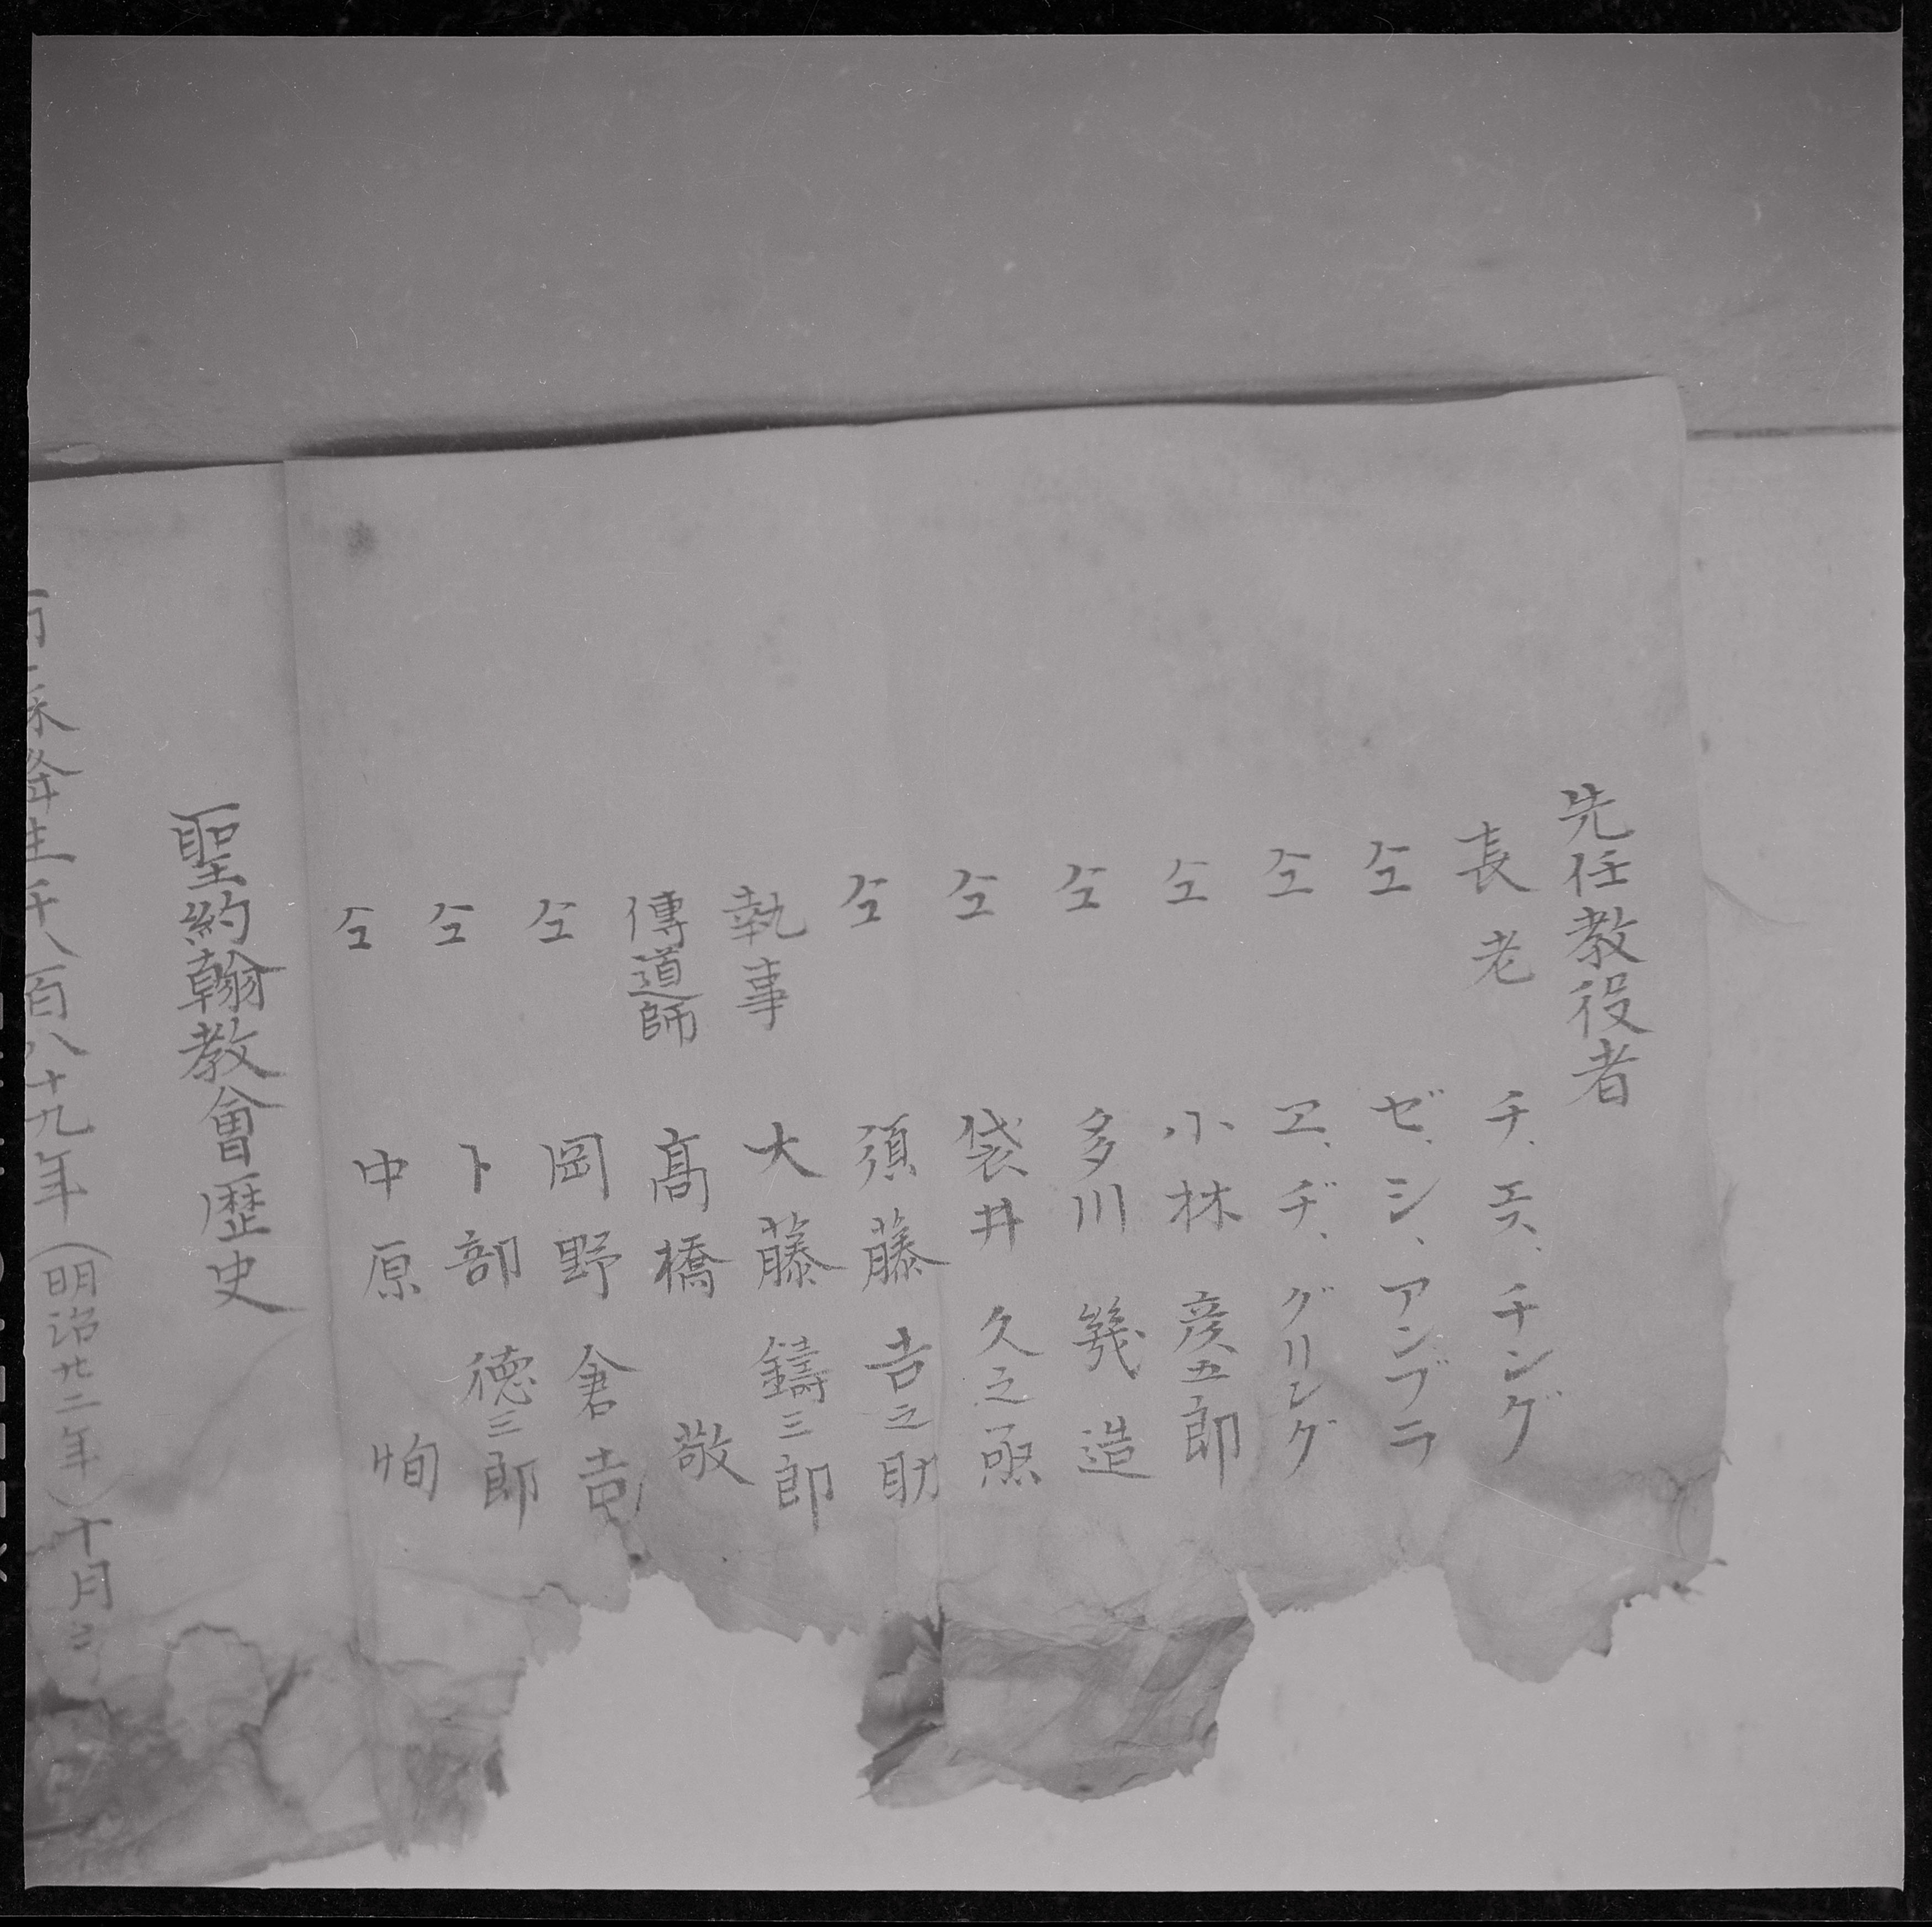 先任教役者
長老 チ、エス、チング
仝 ゼ、シ、アンブラ
仝 ヱ、ヂ、グリング
仝 小林彦五郎
仝 多川幾造
仝 袋井久之
仝 須藤吉之助
執事 大藤鑄三郎
傳道師 高橋敬
仝 岡野倉吉
仝 卜部徳三郎
仝 中原恂
聖約翰教會歴史
降生千八百八十九年(明治廿二年)十月